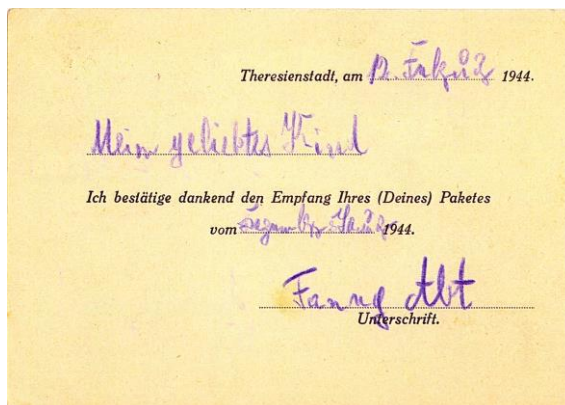 Theresienstadt, am 12. 1944.
Mein geliebtes Kind
Ich bestätige dankend den Empfang Ihres (Deines) Paketes
vom 1944.
Fanny Abt
Unterschrift.